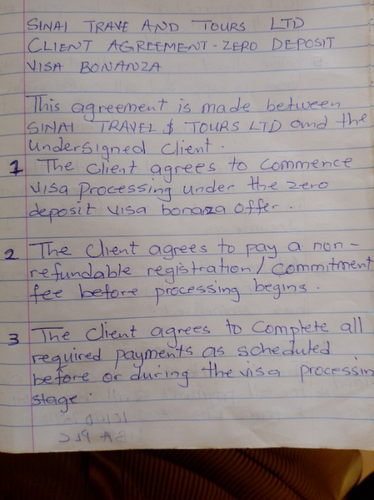 SINAI TRAVE AND TOURS LTD
CLIENT AGREEMENT-ZERO DEPOSIT
VISA BONANZA
This agreement is made between
SINAI TRAVEL & TOURS LTD and the
undersigned client.
1 The client agrees to commence
visa processing under the zero
deposit visa bonaza offer.
2 The client agrees to pay a non-
refundable registration/commitment
fee before processing begins.
3 The client agrees to complete all
required payments as scheduled
before or during the visa processin
stage.